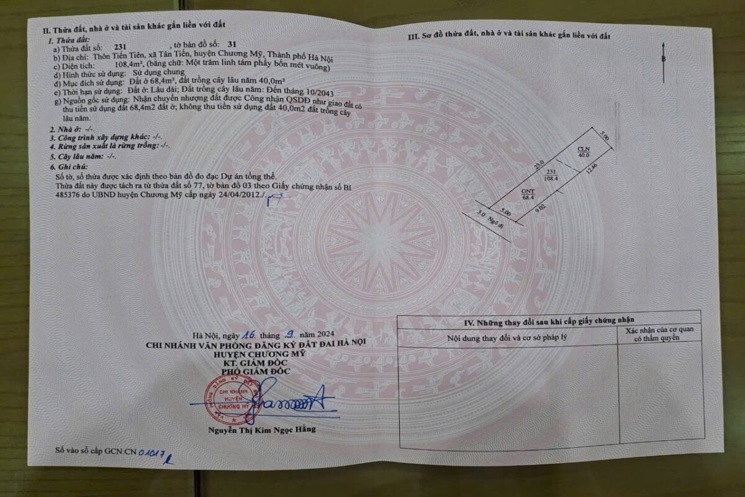 II. Thửa đất, nhà ở và tài sản khác gắn liền với đất
1. Thửa đất:
a) Thửa đất số: 231 , tờ bản đồ số: 31
b) Địa chỉ: Thôn Tiến Tiên, xã Tân Tiến, huyện Chương Mỹ, Thành phố Hà Nội
c) Diện tích: 108,4m², (bằng chữ: Một trăm linh tám phẩy bốn mét vuông)
d) Hình thức sử dụng: Sử dụng chung
đ) Mục đích sử dụng: Đất ở 68,4m², đất trồng cây lâu năm 40,0m²
e) Thời hạn sử dụng: Đất ở: Lâu dài; Đất trồng cây lâu năm: Đến tháng 10/2043
g) Nguồn gốc sử dụng: Nhận chuyển nhượng đất được Công nhận QSDĐ như giao đất có
thu tiền sử dụng đất 68,4m2 đất ở; không thu tiền sử dụng đất 40,0m2 đất trồng cây
lâu năm.
2. Nhà ở: -/-.
3. Công trình xây dựng khác: -/-.
4. Rừng sản xuất là rừng trồng: -/-.
5. Cây lâu năm: -/-.
6. Ghi chú:
Số tờ, số thửa được xác định theo bản đồ đo đạc Dự án tổng thể.
Thửa đất này được tách ra từ thửa đất số 77, tờ bản đồ 03 theo Giấy chứng nhận số BI
485376 do UBND huyện Chương Mỹ cấp ngày 24/04/2012./.
Hà Nội, ngày 16 tháng 9 năm 2024
CHI NHÁNH VĂN PHÒNG ĐĂNG KÝ ĐẤT ĐAI HÀ NỘI
HUYỆN CHƯƠNG MỸ
KT. GIÁM ĐỐC
PHÓ GIÁM ĐỐC
CHI NHÁNH
HUYỆN
CHƯƠNG MỸ
Nguyễn Thị Kim Ngọc Hằng
Số vào sổ cấp GCN:CN 01017
III. Sơ đồ thửa đất, nhà ở và tài sản khác gắn liền với đất
5.00
CLN
40.0
23.0
231
108.4
12.46
ONT
68.4
9.02
5.00
3.0 - Ngõ đi
IV. Những thay đổi sau khi cấp giấy chứng nhận
Nội dung thay đổi và cơ sở pháp lý
Xác nhận của cơ quan
có thẩm quyền